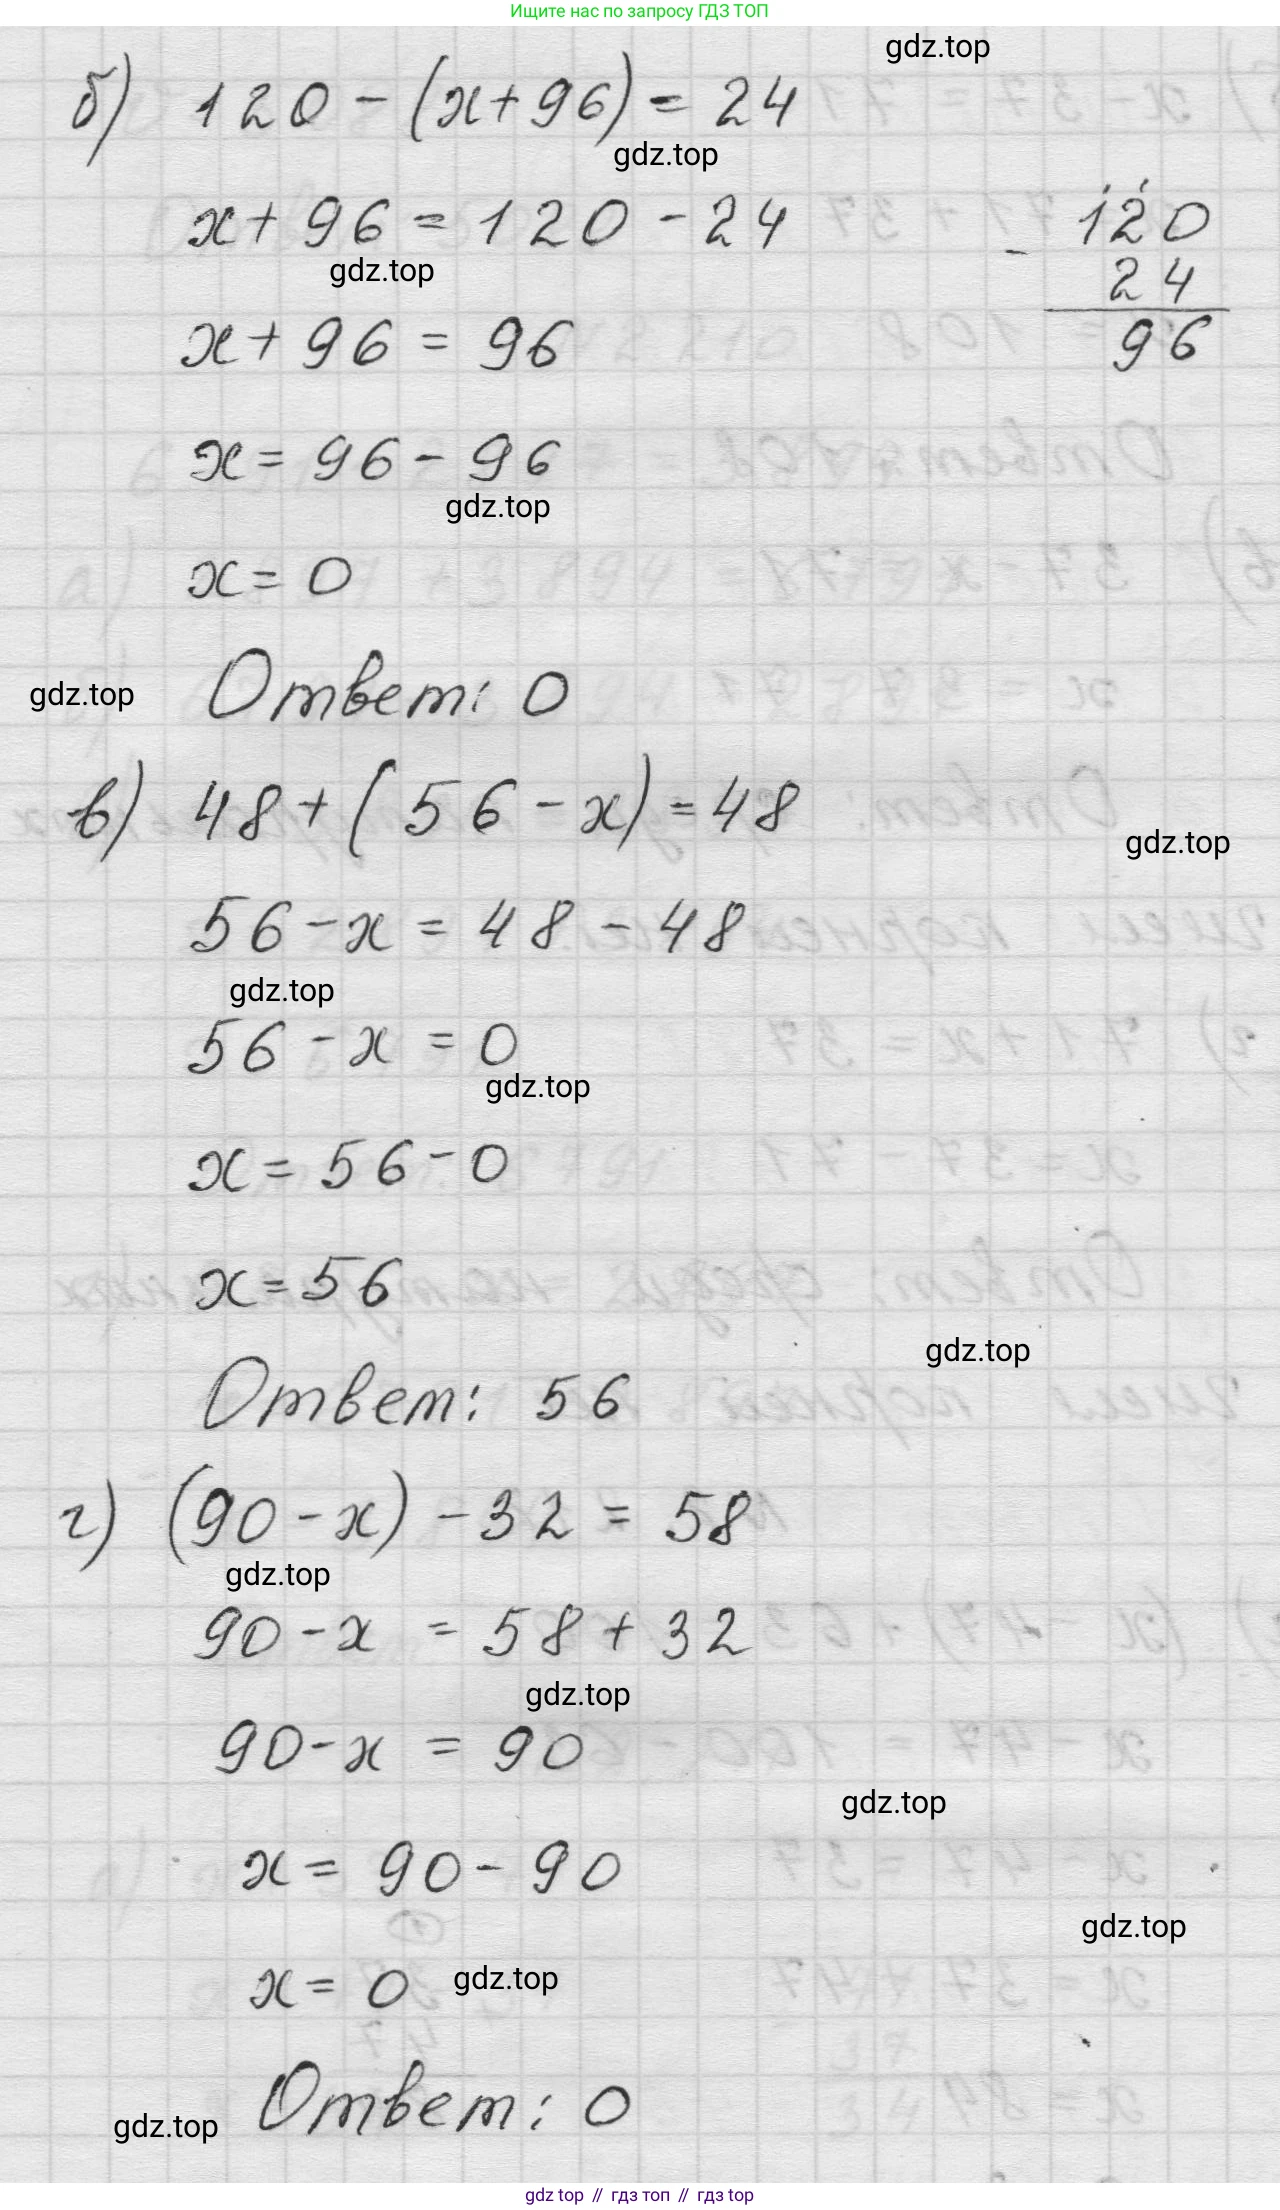 Ищите нас по запросу ГДЗ ТОП
gdz.top
б) 120 - (x + 96) = 24
gdz.top
x + 96 = 120 - 24
gdz.top
- 120
24
96
x + 96 = 96
x = 96 - 96
gdz.top
x = 0
gdz.top
Ответ: 0
в) 48 + (56 - x) = 48
gdz.top
56 - x = 48 - 48
gdz.top
56 - x = 0
gdz.top
x = 56 - 0
x = 56
gdz.top
Ответ: 56
г) (90 - x) - 32 = 58
gdz.top
90 - x = 58 + 32
gdz.top
90 - x = 90
gdz.top
x = 90 - 90
gdz.top
x = 0
gdz.top
Ответ: 0
gdz.top
gdz top // гдз топ // gdz top